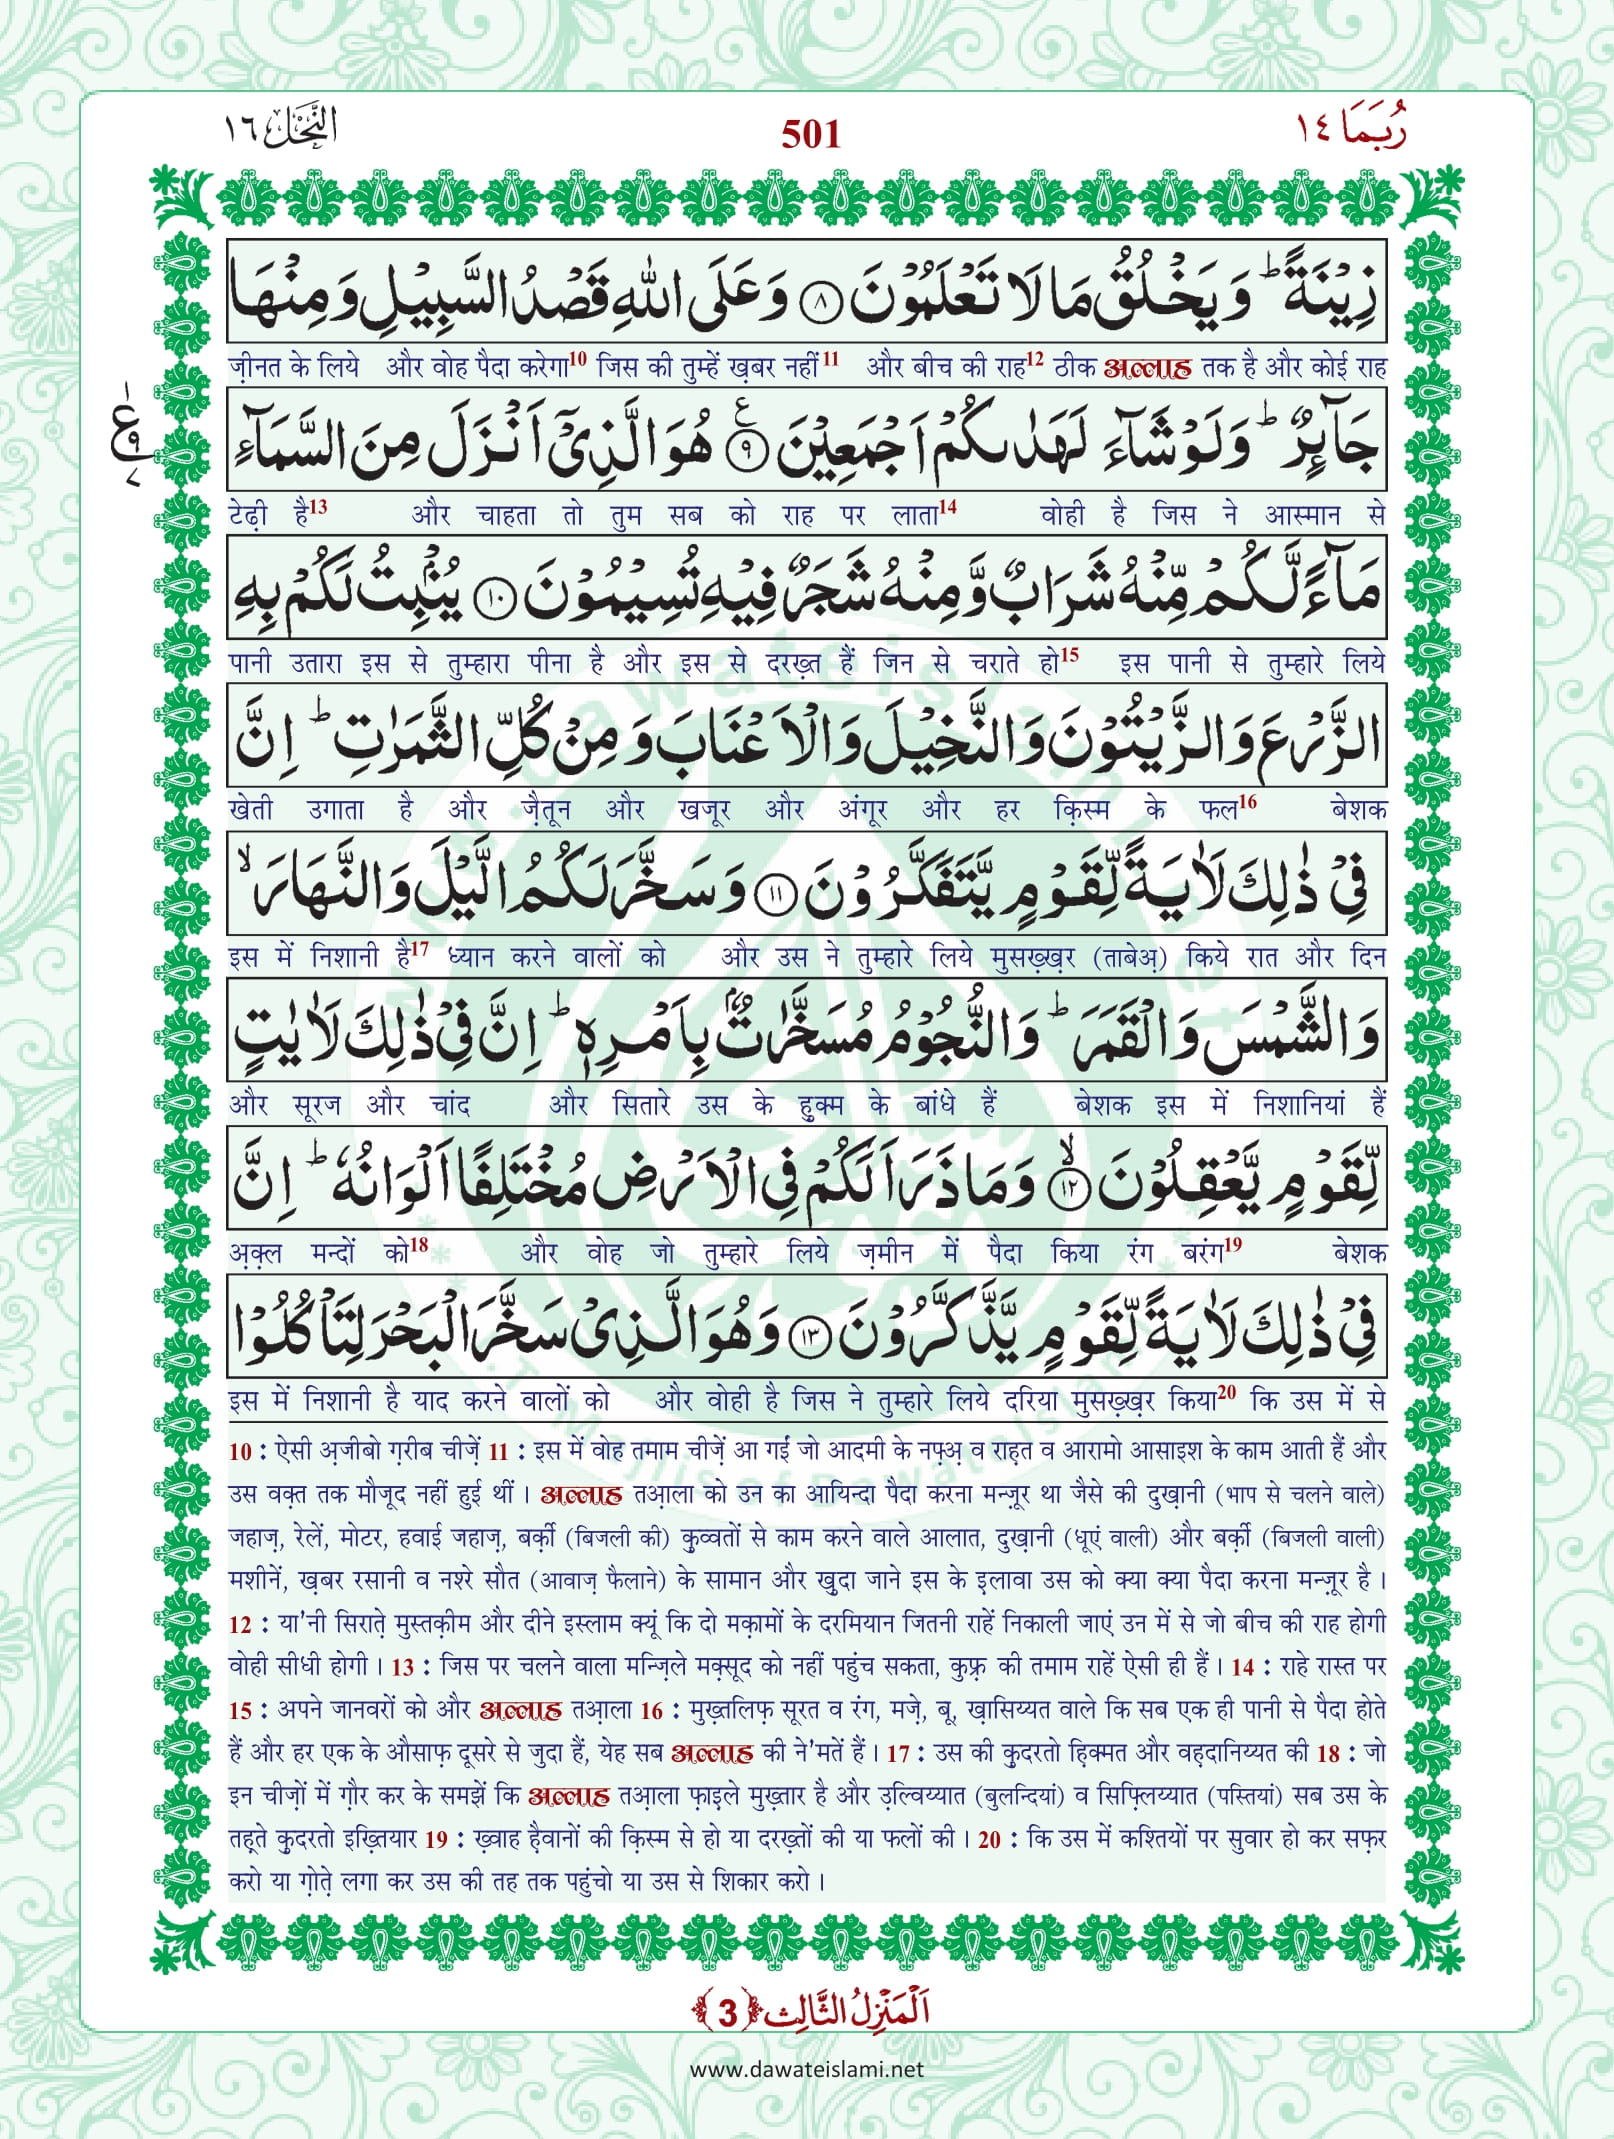 النَّحْل ١٦
501
رُبَمَا ١٤
زِیْنَةًؕ وَ یَخْلُقُ مَا لَا تَعْلَمُوْنَ ﴿۸﴾ وَ عَلَى اللّٰهِ قَصْدُ السَّبِیْلِ وَ مِنْهَا
ज़ीनत के लिये और वोह पैदा करेगा10 जिस की तुम्हें ख़बर नहीं11 और बीच की राह12 ठीक अल्लाह तक है और कोई राह
جَآىٕرٌؕ وَ لَوْ شَآءَ لَهَدٰىكُمْ اَجْمَعِیْنَ ﴿۹﴾ هُوَ الَّذِیْۤ اَنْزَلَ مِنَ السَّمَآءِ
ع ۹ ۷
टेढ़ी है13 और चाहता तो तुम सब को राह पर लाता14 वोही है जिस ने आस्मान से
مَآءً لَّكُمْ مِّنْهُ شَرَابٌ وَّ مِنْهُ شَجَرٌ فِیْهِ تُسِیْمُوْنَ ﴿۱۰﴾ یُنْۢبِتُ لَكُمْ بِهِ
पानी उतारा इस से तुम्हारा पीना है और इस से दरख़्त हैं जिन से चराते हो15 इस पानी से तुम्हारे लिये
الزَّرْعَ وَ الزَّیْتُوْنَ وَ النَّخِیْلَ وَ الْاَعْنَابَ وَ مِنْ كُلِّ الثَّمَرٰتِؕ اِنَّ
खेती उगाता है और ज़ैतून और खजूर और अंगूर और हर क़िस्म के फल16 बेशक
فِیْ ذٰلِكَ لَاٰیَةً لِّقَوْمٍ یَّتَفَكَّرُوْنَ ﴿۱۱﴾ وَ سَخَّرَ لَكُمُ الَّیْلَ وَ النَّهَارَۙ
इस में निशानी है17 ध्यान करने वालों को और उस ने तुम्हारे लिये मुसख़्ख़र (ताबेअ़) किये रात और दिन
وَ الشَّمْسَ وَ الْقَمَرَؕ وَ النُّجُوْمُ مُسَخَّرٰتٌۢ بِاَمْرِهٖؕ اِنَّ فِیْ ذٰلِكَ لَاٰیٰتٍ
और सूरज और चांद और सितारे उस के हुक्म के बांधे हैं बेशक इस में निशानियां हैं
لِّقَوْمٍ یَّعْقِلُوْنَۙ ﴿۱۲﴾ وَ مَا ذَرَاَ لَكُمْ فِی الْاَرْضِ مُخْتَلِفًا اَلْوَانُهٗؕ اِنَّ
अ़क़्ल मन्दों को18 और वोह जो तुम्हारे लिये ज़मीन में पैदा किया रंग बरंग19 बेशक
فِیْ ذٰلِكَ لَاٰیَةً لِّقَوْمٍ یَّذَّكَّرُوْنَ ﴿۱۳﴾ وَ هُوَ الَّذِیْ سَخَّرَ الْبَحْرَ لِتَاْكُلُوْا
इस में निशानी है याद करने वालों को और वोही है जिस ने तुम्हारे लिये दरिया मुसख़्ख़र किया20 कि उस में से
10 : ऐसी अ़जीबो ग़रीब चीज़ें 11 : इस में वोह तमाम चीज़ें आ गई जो आदमी के नफ़्अ़ व राह़त व आरामो आसाइश के काम आती हैं और
उस वक़्त तक मौजूद नहीं हुई थीं । अल्लाह तआ़ला को उन का आयिन्दा पैदा करना मन्ज़ूर था जैसे की दुख़ानी (भाप से चलने वाले)
जहाज़, रेलें, मोटर, हवाई जहाज़, बर्क़ी (बिजली की) कुव्वतों से काम करने वाले आलात, दुख़ानी (धूएं वाली) और बर्क़ी (बिजली वाली)
मशीनें, ख़बर रसानी व नश्रे सौत (आवाज़ फैलाने) के सामान और खुदा जाने इस के इलावा उस को क्या क्या पैदा करना मन्ज़ूर है ।
12 : या'नी सिराते़ मुस्तक़ीम और दीने इस्लाम क्यूं कि दो मक़ामों के दरमियान जितनी राहें निकाली जाएं उन में से जो बीच की राह होगी
वोही सीधी होगी । 13 : जिस पर चलने वाला मन्ज़िले मक़्सूद को नहीं पहुंच सकता, कुफ़्र की तमाम राहें ऐसी ही हैं । 14 : राहे रास्त पर
15 : अपने जानवरों को और अल्लाह तआ़ला 16 : मुख़्तलिफ़ सूरत व रंग, मज़े, बू, ख़ासिय्यत वाले कि सब एक ही पानी से पैदा होते
हैं और हर एक के औसाफ़ दूसरे से जुदा हैं, येह सब अल्लाह की ने'मतें हैं । 17 : उस की क़ुदरतो ह़िक्मत और वह़दानिय्यत की 18 : जो
इन चीज़ों में ग़ौर कर के समझें कि अल्लाह तआ़ला फ़ाइले मुख़्तार है और उ़ल्विय्यात (बुलन्दियां) व सिफ़्लिय्यात (पस्तियां) सब उस के
तह़ते क़ुदरतो इख़्तियार 19 : ख़्वाह है़वानों की क़िस्म से हो या दरख़्तों की या फलों की । 20 : कि उस में कश्तियों पर सुवार हो कर सफ़र
करो या ग़ोते़ लगा कर उस की तह तक पहुंचो या उस से शिकार करो ।
اَلْمَنْزِلُ الثَّالِث ﴿3﴾
www.dawateislami.net